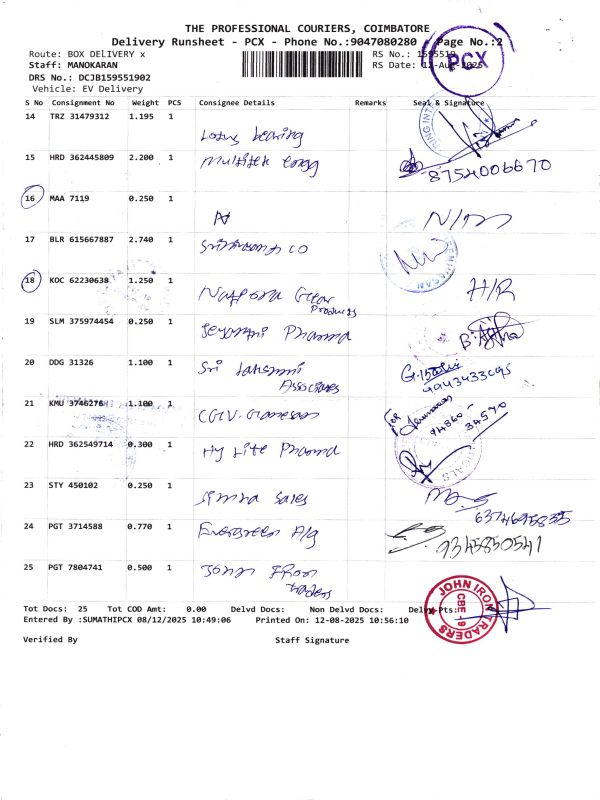 THE PROFESSIONAL COURIERS, COIMBATORE
Delivery Runsheet - PCX - Phone No.:9047080280 Page No.:2
Route: BOX DELIVERY x RS No.: 1595519
Staff: MANOKARAN RS Date: 12-Aug-2025
PCX
DRS No.: DCJB159551902
Vehicle: EV Delivery
S No Consignment No Weight PCS Consignee Details Remarks Seal & Signature
14 TRZ 31479312 1.195 1
Lotus bearing
15 HRD 362445809 2.200 1 Multitek engg
8754006670
16 MAA 7119 0.250 1
N/
17 BLR 615667887 2.740 1
CO
18 KOC 62230638 1.250 1 H/R
Products
19 SLM 375974454 0.250 1
Pharma
20 DDG 31326 1.100 1 Sri
Associates
21 KMU 3746276 1.100 1
For
94860
34570
22 HRD 362549714 0.300 1
Hy Lite Pharma
23 STY 450102 0.250 1
Simra Sales
6374695835
24 PGT 3714588 0.770 1 Evergreen A/g
9345850541
25 PGT 7804741 0.500 1
John Iron
traders
Tot Docs: 25 Tot COD Amt: 0.00 Delvd Docs: Non Delvd Docs: Delvd Pts:
Entered By :SUMATHIPCX 08/12/2025 10:49:06 Printed On: 12-08-2025 10:56:10
JOHN IRON TRADERS
CBE - 9
Verified By Staff Signature